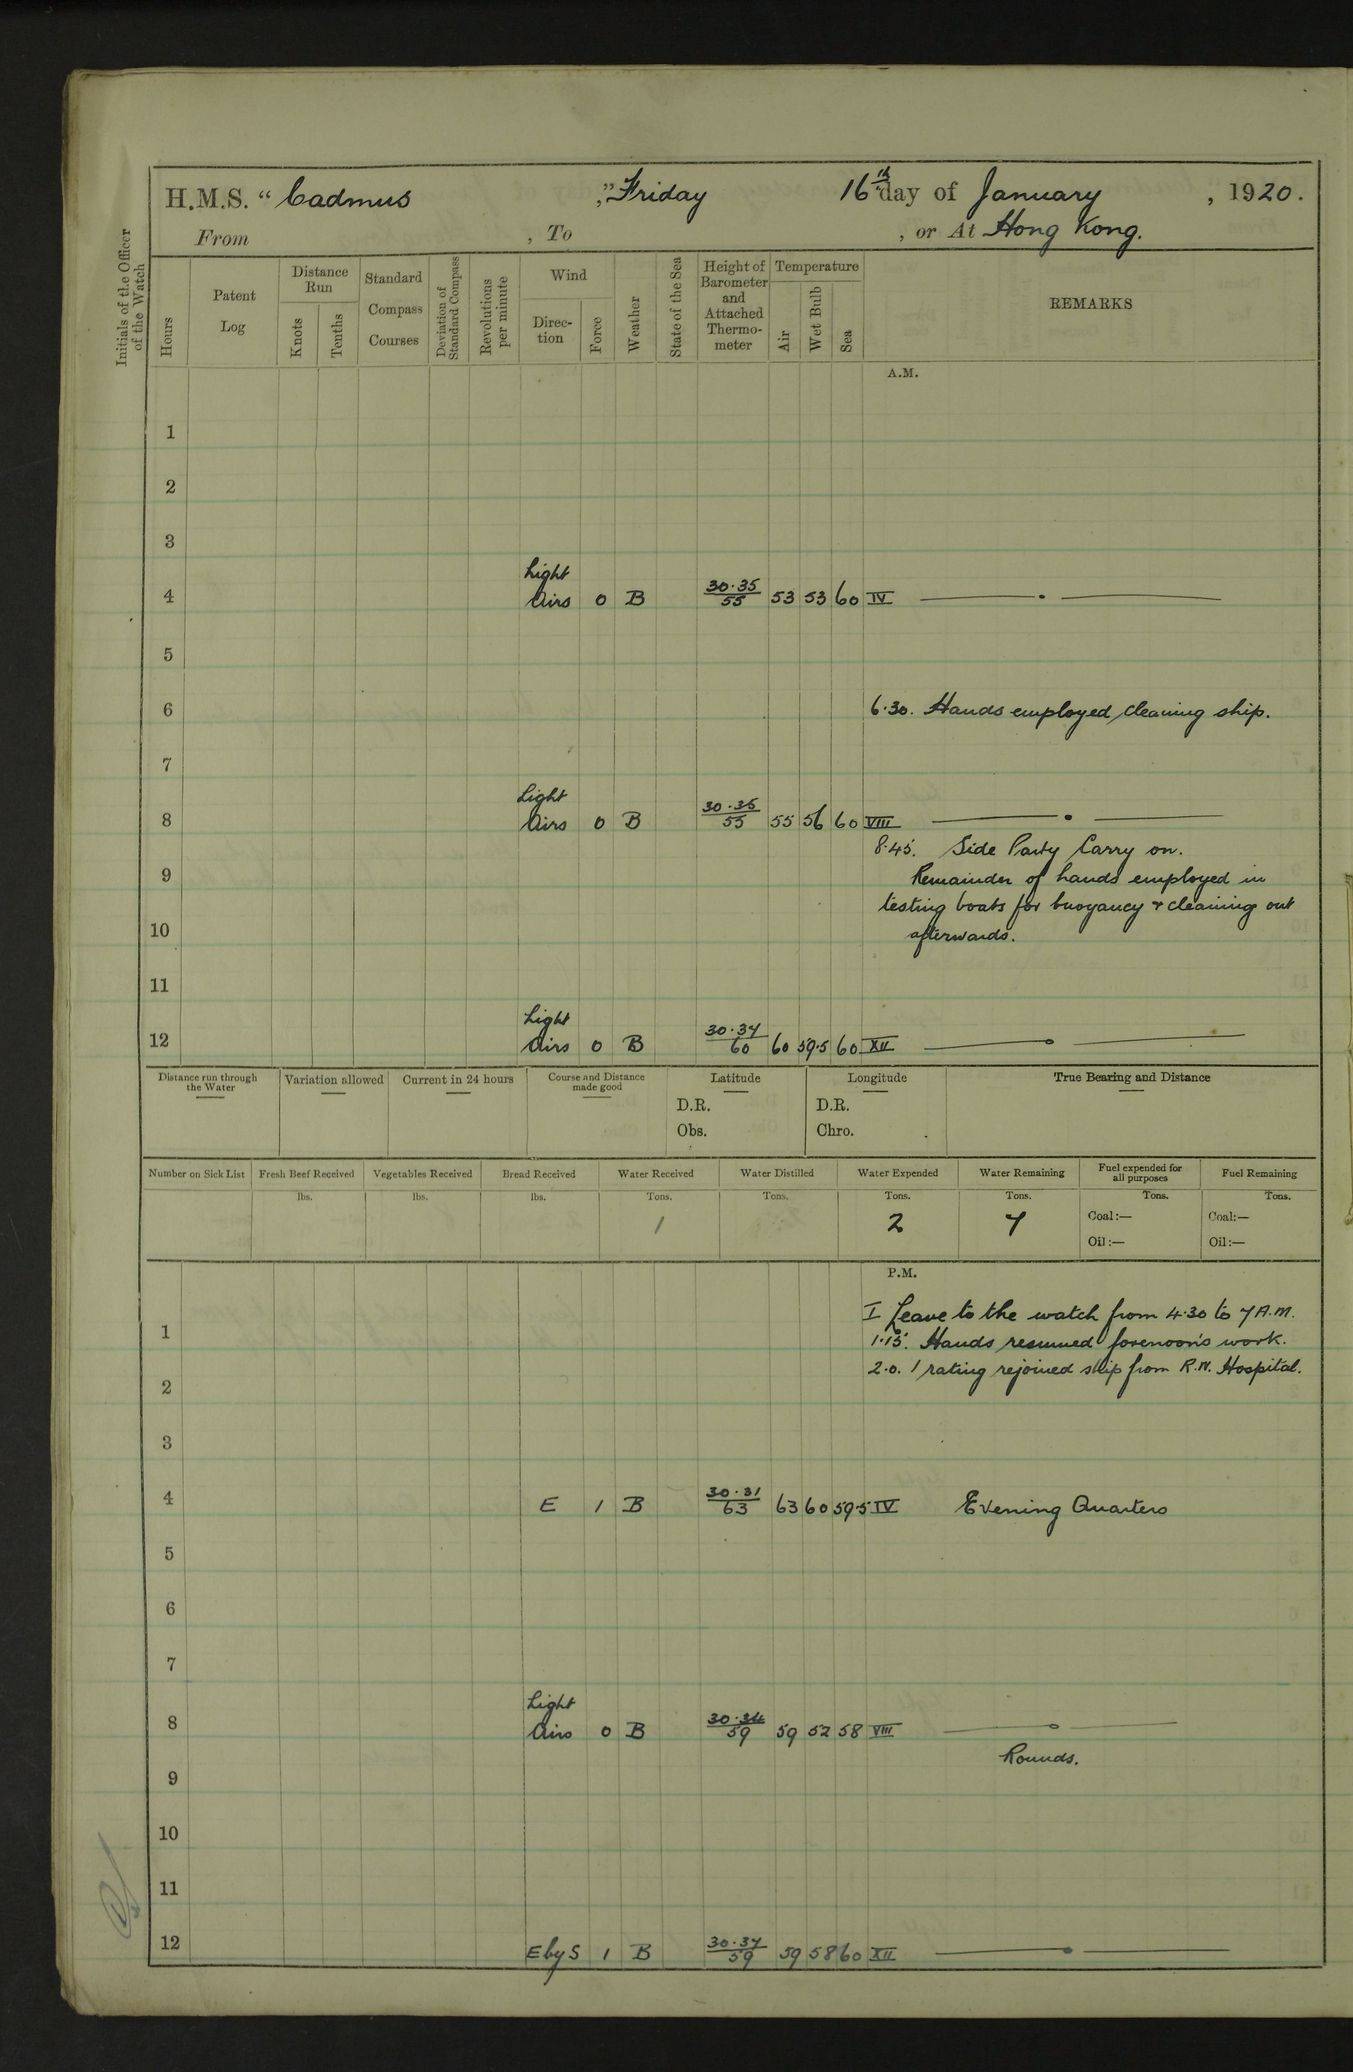 H.M.S. “Cadmus ,” Friday 16th day of January , 1920.
From , To , or At Hong Kong.
Initials of the Officer of the Watch
Hours
Patent Log
Distance Run
Knots
Tenths
Standard Compass Courses
Deviation of Standard Compass
Revolutions per minute
Wind
Direction
Force
Weather
State of the Sea
Height of Barometer and Attached Thermometer
Temperature
Air
Wet Bulb
Sea
REMARKS
A.M.
1
2
3
Light
4 Airs 0 B 30.35/55 53 53 60 IV
5
6 6.30. Hands employed cleaning ship.
7
Light
8 Airs 0 B 30.35/55 55 56 60 VIII
8.45. Side Party Carry on.
9 Remainder of hands employed in
testing boats for buoyancy & cleaning out
10 afterwards.
11
Light
12 Airs 0 B 30.37/60 60 59.5 60 XII
Distance run through the Water
Variation allowed
Current in 24 hours
Course and Distance made good
Latitude
D.R.
Obs.
Longitude
D.R.
Chro.
True Bearing and Distance
Number on Sick List Fresh Beef Received Vegetables Received Bread Received Water Received Water Distilled Water Expended Water Remaining Fuel expended for all purposes Fuel Remaining
lbs. lbs. lbs. Tons. Tons. Tons. Tons. Tons. Tons.
1 2 7 Coal:— Coal:—
Oil:— Oil:—
P.M.
I Leave to the watch from 4.30 to 7 A.M.
1 1.15. Hands resumed forenoon's work.
2.0. 1 rating rejoined ship from R.N. Hospital.
2
3
4 E 1 B 30.31/63 63 60 59.5 IV Evening Quarters
5
6
7
Light
8 Airs 0 B 30.34/59 59 57 58 VIII
Rounds.
9
10
11
12 E by S 1 B 30.37/59 59 58 60 XII